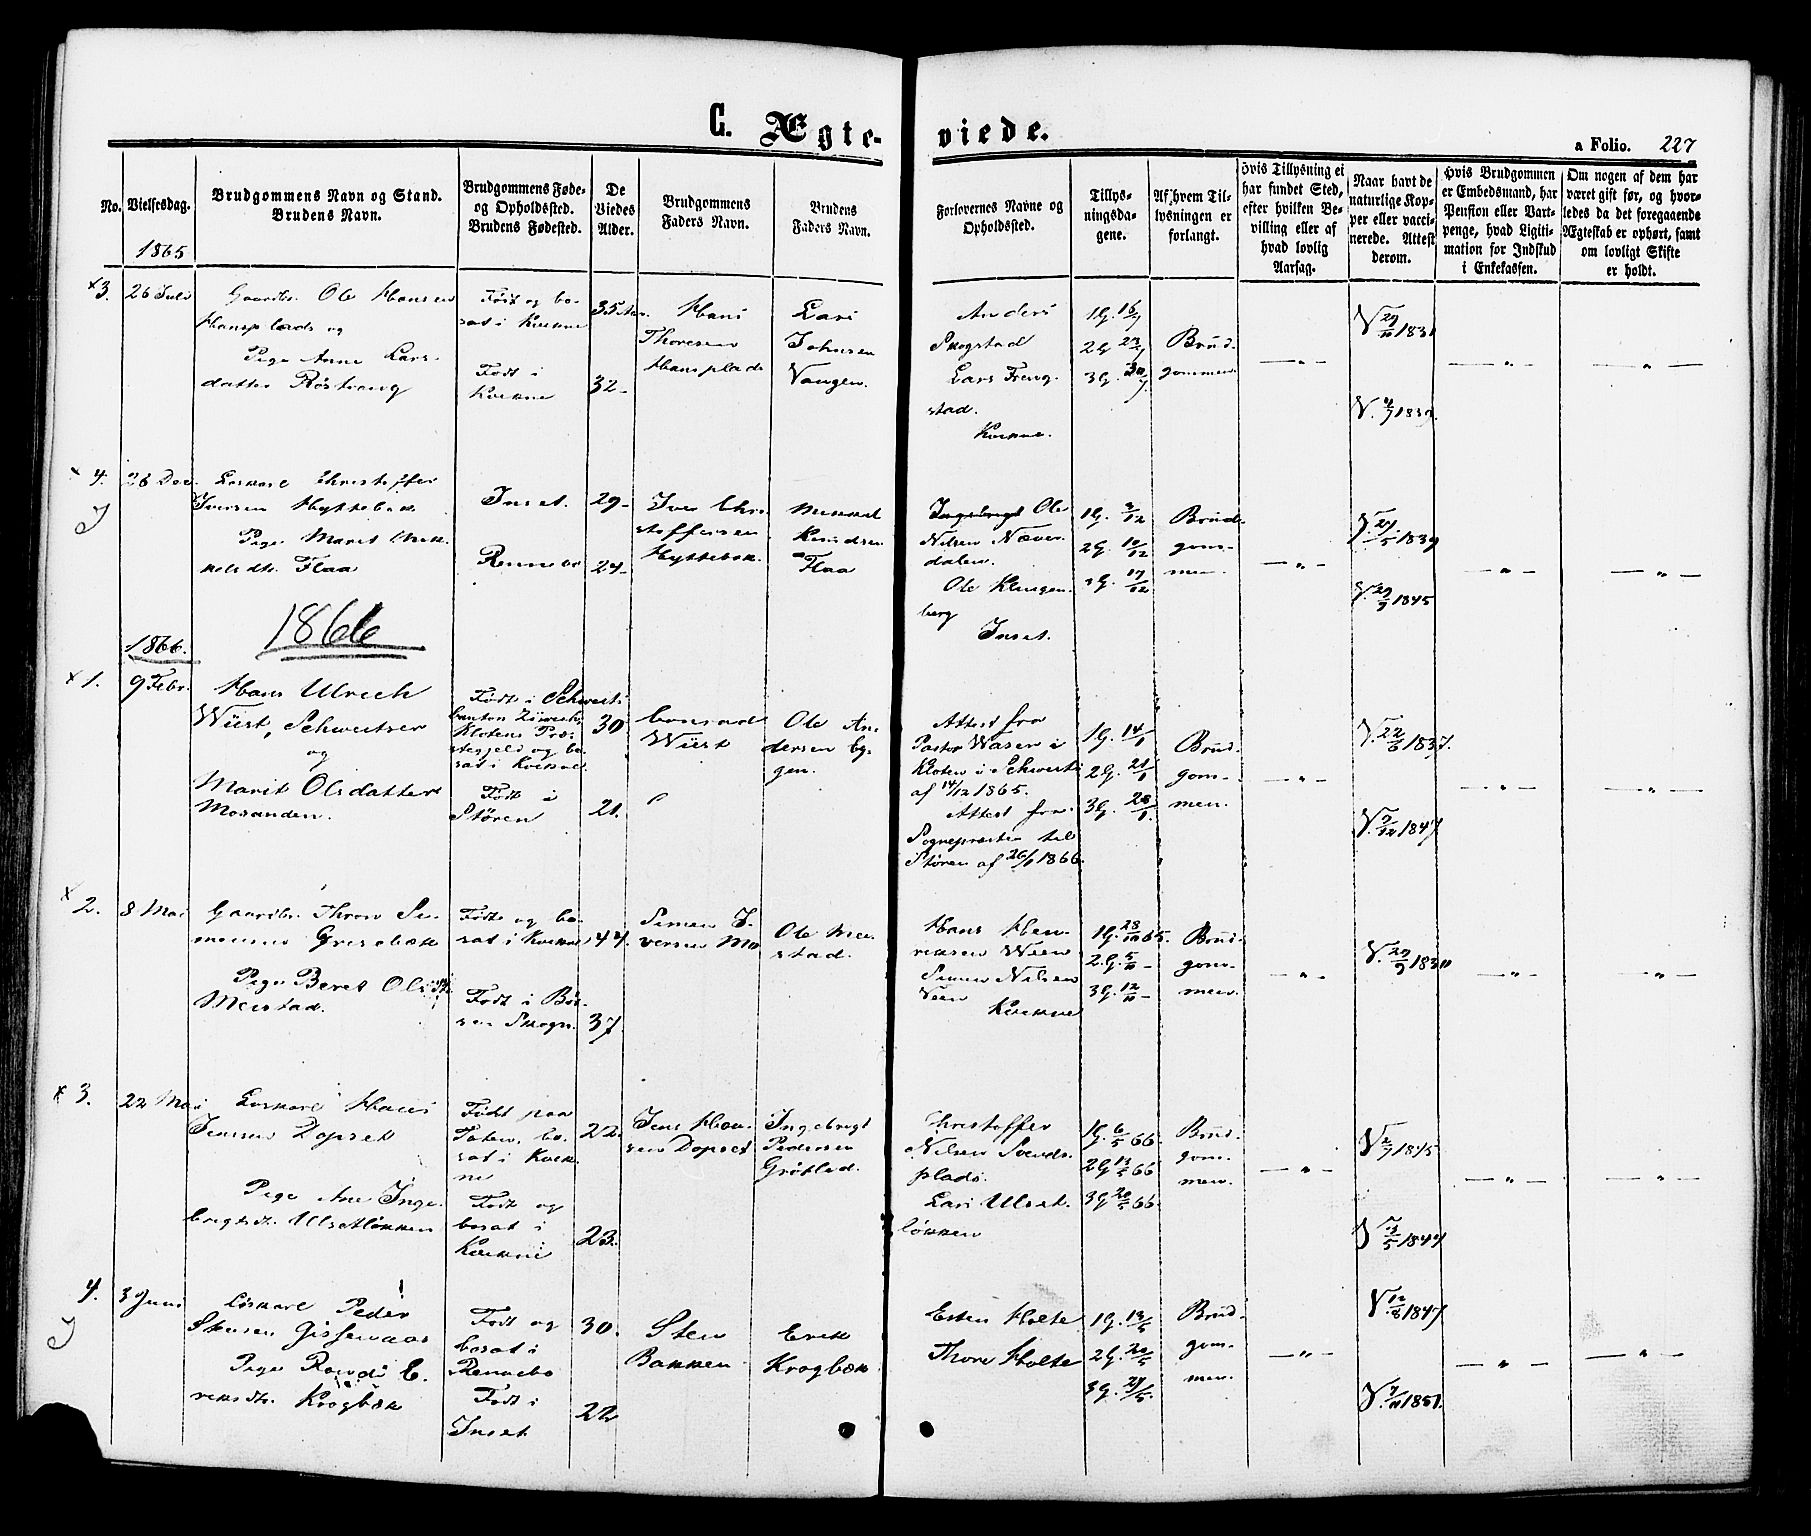 C. Ægteviede.
a Folio. 227
No.
Vielsesdag.
Brudgommens Navn og Stand.
Brudens Navn.
Brudgommens Føde-
og Opholdssted.
Brudens Fødested.
De
Viedes
Alder.
Brudgommens
Faders Navn.
Brudens
Faders Navn.
Forlovernes Navne og
Opholdssted.
Tillys-
ningsda-
gene.
Af hvem Til-
lysningen er
forlangt.
Hvis Tillysning ei
har fundet Sted,
efter hvilken Be-
villing eller af
hvad lovlig
Aarsag.
Naar havt de
naturlige Kop-
per eller vacci-
nerede. Attest
derom.
Hvis Brudgommen
er Embedsmand, har
Pension eller Vart-
penge, hvad Ligiti-
mation for Indskud
i Enkekassen.
Om nogen af dem har
været gift før, og hvor-
ledes da det foregaaende
Ægteskab er ophørt, samt
om lovligt Skifte
er holdt.
1865
x3.
26 Juli
Gaardbr. Ole Hansen
Hansplads og
Pige Anne Lars-
datter Røstvang
Født og bo-
sat i Kvikne
Født i
Kvikne
35 Aar.
32 -
Hans
Thoresen
Hansplads
Lars
Johnsen
Vangen.
Anders
Skogstad
Lars Freng-
stad.
Kvikne.
1 G. 16/7
2 G 23/7
3 G. 30/7
Brud-
gommen.
— " —
V 29/10 1831
V. 4/7 1839.
— " —
— " —
x 4.
26 Dec.
Løskarl Christoffer
Iversen Hyttebak
Pige Marit Mik-
kelsdt. Flaa
Inset.
Rennebo
29 -
24 -
Iver Chri-
stoffersen
Hyttebak.
Mikkel
Knudsen
Flaa
Ole
Nilsen Næver-
dalen.
Ole Klungen-
berg
Inset.
1 G. 3/12
2 G. 10/12
3 G. 17/12
Brud-
gom-
men.
— " —
V. 27/5 1839
V. 29/9 1845
— " —
— " —
1866.
1866
x 1.
9 Febr.
Hans Ulrich
Wüst, Schweitser
og
Marit Olsdatter
Mosanden.
Født i Schweits
Canton Zürich,
Klotens Præ-
stegjeld og bo-
sat i Kvikne
Født i
Støren
30
21.
Conrad
Wüst
Ole An-
dersen Eg-
gen.
Attest fra
Pastor Waser i
Kloten i Schweits
af 14/12 1865.
Attest fra
Sognepresten til
Støren af 26/1 1866.
1 G. 14/1
2 G. 21/1
3 G. 28/1.
Brud-
gom-
men.
— " —
V. 22/6 1837.
V. 9/12 1847
— " —
— " —
x 2.
8 Mai
Gaardbr. Thron Si-
mensen Grisebæk
Pige Beret Olsdt.
Meistad.
Født og bo-
sat i Kvikne
Født i Bør-
sen Skogn.
44.
37.
Simen I-
versen Mo
Ole Mei-
stad.
Hans Hen-
riksen Wien
Simen Nilsen
Vien
Kvikne
1 G. 28/10 65.
2. G. 5/11 -
3 G. 12/11 -
Brud-
gom-
men.
— " —
V. 29/9 1830
— " —
— " —
x 3.
22 Mai
Løskarl Hans
Jensen Dopset
Pige Ane Inge-
brigtsdt. Ulsetløkken
Født paa
Toten, bo-
sat i Kvik-
ne
Født og
bosat i
Kvikne
22.
23.
Jens Han-
sen Dopset
Ingebrigt
Pedersen
Grøtlid.
Christoffer
Nilsen Svends-
plads.
Lars Ulset-
løkken
1 G. 6/5 66.
2 G 13/5 66
3 G 20/5 66.
Brud-
gom-
men.
— " —
V 2/7 1845
V 23/5 1844
— " —
— " —
4.
3 Juni
Løskarl Peder
Stensen Gissenaas
Pige Randi E-
riksdt. Krogbæk
Født og
bosat i
Rennebo
Født i
Inset
30.
22
Sten
Bakken
Erik
Krogbæk
Esten Holte
Thore Holte
1 G. 13/5
2 G. 20/5
3 G. 27/5.
Brud-
gom-
men.
— " —
V 12/8 1847
V. 7/11 1851.
— " —
— " —